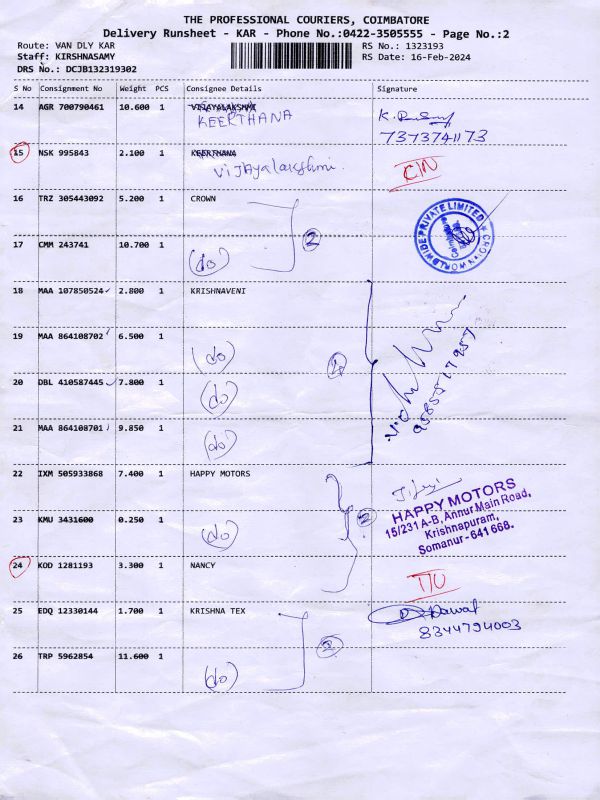 THE PROFESSIONAL COURIERS, COIMBATORE
Delivery Runsheet - KAR - Phone No.:0422-3505555 - Page No.:2
Route: VAN DLY KAR
RS No.: 1323193
Staff: KIRSHNASAMY
RS Date: 16-Feb-2024
DRS No.: DCJB132319302
S No Consignment No Weight PCS Consignee Details Signature
14 AGR 700790461 10.600 1 VIJAYALAKSHMI
KEERTHANA
7373741173
15 NSK 995843 2.100 1 KEERTHANA
Vijayalakshmi
16 TRZ 305443092 5.200 1 CROWN
CROWN WORLDWIDE PRIVATE LIMITED
17 CMM 243741 10.700 1 (do) 2
18 MAA 107850524 2.800 1 KRISHNAVENI
19 MAA 864108702 6.500 1 (do) 4
20 DBL 410587445 7.800 1 (do)
21 MAA 864108701 9.850 1 (do)
22 IXM 505933868 7.400 1 HAPPY MOTORS
HAPPY MOTORS
15/231 A-B, Annur Main Road,
Krishnapuram,
Somanur - 641 668.
23 KMU 3431600 0.250 1 (do) 2
24 KOD 1281193 3.300 1 NANCY
25 EDQ 12330144 1.700 1 KRISHNA TEX
8344794003
26 TRP 5962854 11.600 1 (do) 2